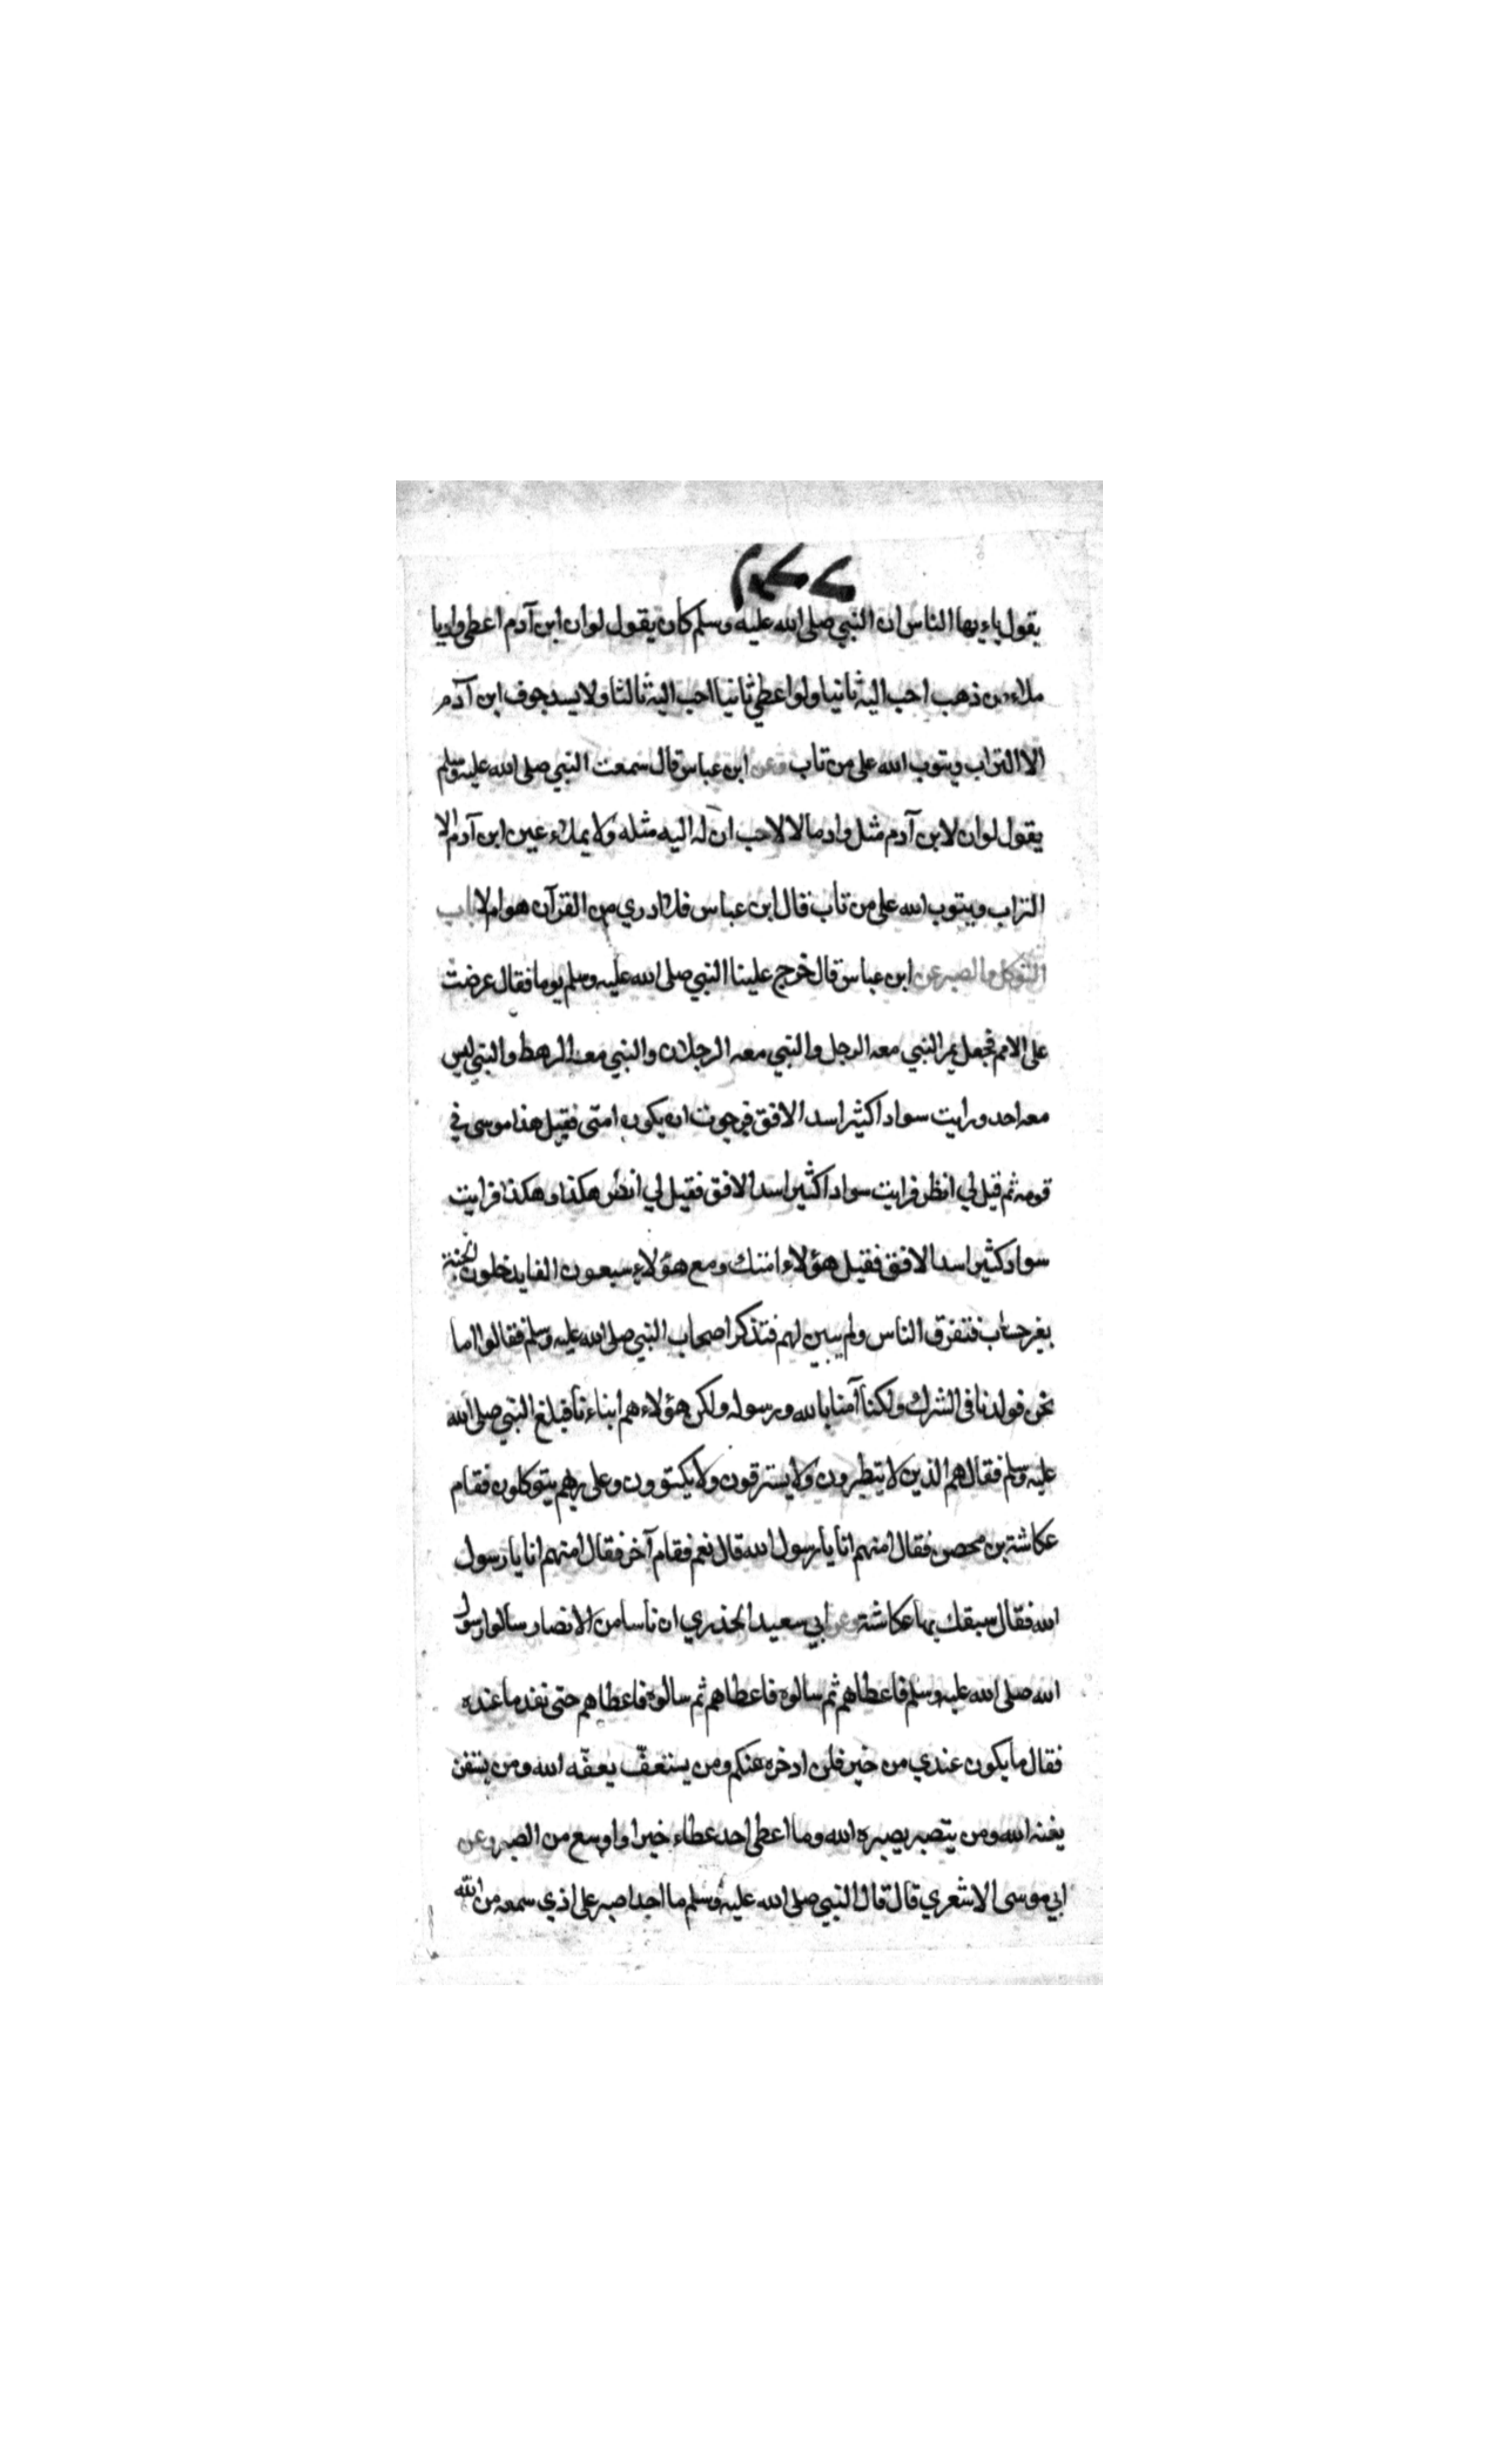 يقول ياءيها الناس ان النبي صلى الله عليه وسلم كان يقول لو ان ابن آدم اعطى واديا
ملاء من ذهب احب اليه ثانيا ولو اعطي ثانيا احب اليه ثالثا ولا يسد جوف ابن آدم
الا التراب ويتوب الله على من تاب وعن ابن عباس قال سمعت النبي صلى الله عليه وسلم
يقول لو ان لابن آدم مثل واد مالا لاحب ان له اليه مثله ولا يملاء عين ابن آدم الا
التراب ويتوب الله على من تاب قال ابن عباس فلا ادري من القرآن هو ام لا باب
التوكل والصبر عن ابن عباس قال خرج علينا النبي صلى الله عليه وسلم يوما فقال عرضت
على الامم فجعل يمر النبي معه الرجل والنبي معه الرجلان والنبي معه الرهط والنبي ليس
معه احد ورايت سوادا كثيرا سد الافق فرجوت ان يكون امتي فقيل هذا موسى في
قومه ثم قيل لي انظر فرايت سوادا كثيرا سد الافق فقيل لي انظر هكذا وهكذا فرايت
سواد كثيرا سد الافق فقيل هؤلاء امتك ومع هؤلاء سبعون الفا يدخلون الجنة
بغير حساب فتفرق الناس ولم يبين لهم فتذكر اصحاب النبي صلى الله عليه وسلم فقالوا اما
نحن فولدنا فى الشرك ولكنا آمنا بالله ورسوله ولكن هؤلاء هم ابناءنا فبلغ النبي صلى الله
عليه وسلم فقال هم الذين لا يتطيرون ولا يسترقون ولا يكتوون وعلى ربهم يتوكلون فقام
عكاشة بن محصن فقال امنهم انا يا رسول الله قال نعم فقام آخر فقال امنهم انا يا رسول
الله فقال سبقك بها عكاشة وعن ابي سعيد الخذري ان ناسا من الانصار سالوا رسول
الله صلى الله عليه وسلم فاعطاهم ثم سالوه فاعطاهم ثم سالوه فاعطاهم حتى نفد ما عنده
فقال ما يكون عندي من خير فلن ادخره عنكم ومن يستعفّ يعفّه الله ومن يستغن
يغنه الله ومن يتصبر يصبره الله وما اعطى احد عطاء خيرا واوسع من الصبر وعن
ابي موسى الاشعري قال قال النبي صلى الله عليه وسلم ما احد اصبر على اذي سمعه من الله